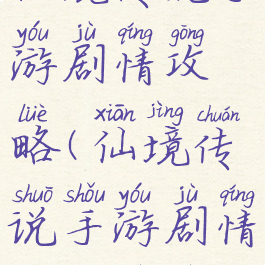 yóu jù qíng gōng
游剧情攻
lüè xiān jìng chuán
略(仙境传
shuō shǒu yóu jù qíng
说手游剧情